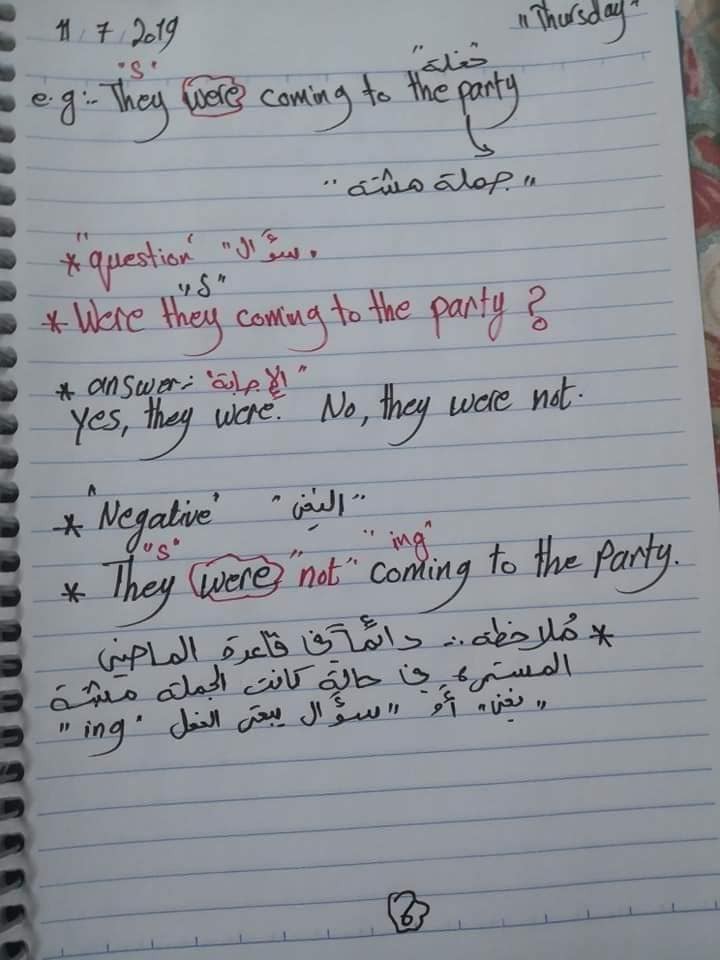 11 / 7 / 2019 "Thursday"
"S" "حفلة"
e.g:- They were coming to the party
"جملة مثبتة"
* "question" "سؤال".
"S"
* Were they coming to the party?
* answer:- "الإجابة"
Yes, they were. No, they were not.
* "Negative" "النفي"
"S" "ing"
* They were "not" coming to the Party.
* مُلاحظة :- دائماً في قاعدة الماضي
المستمر في حالة كانت الجملة مثبتة
"نفي" أو "سؤال يبقى الفعل "ing"
6